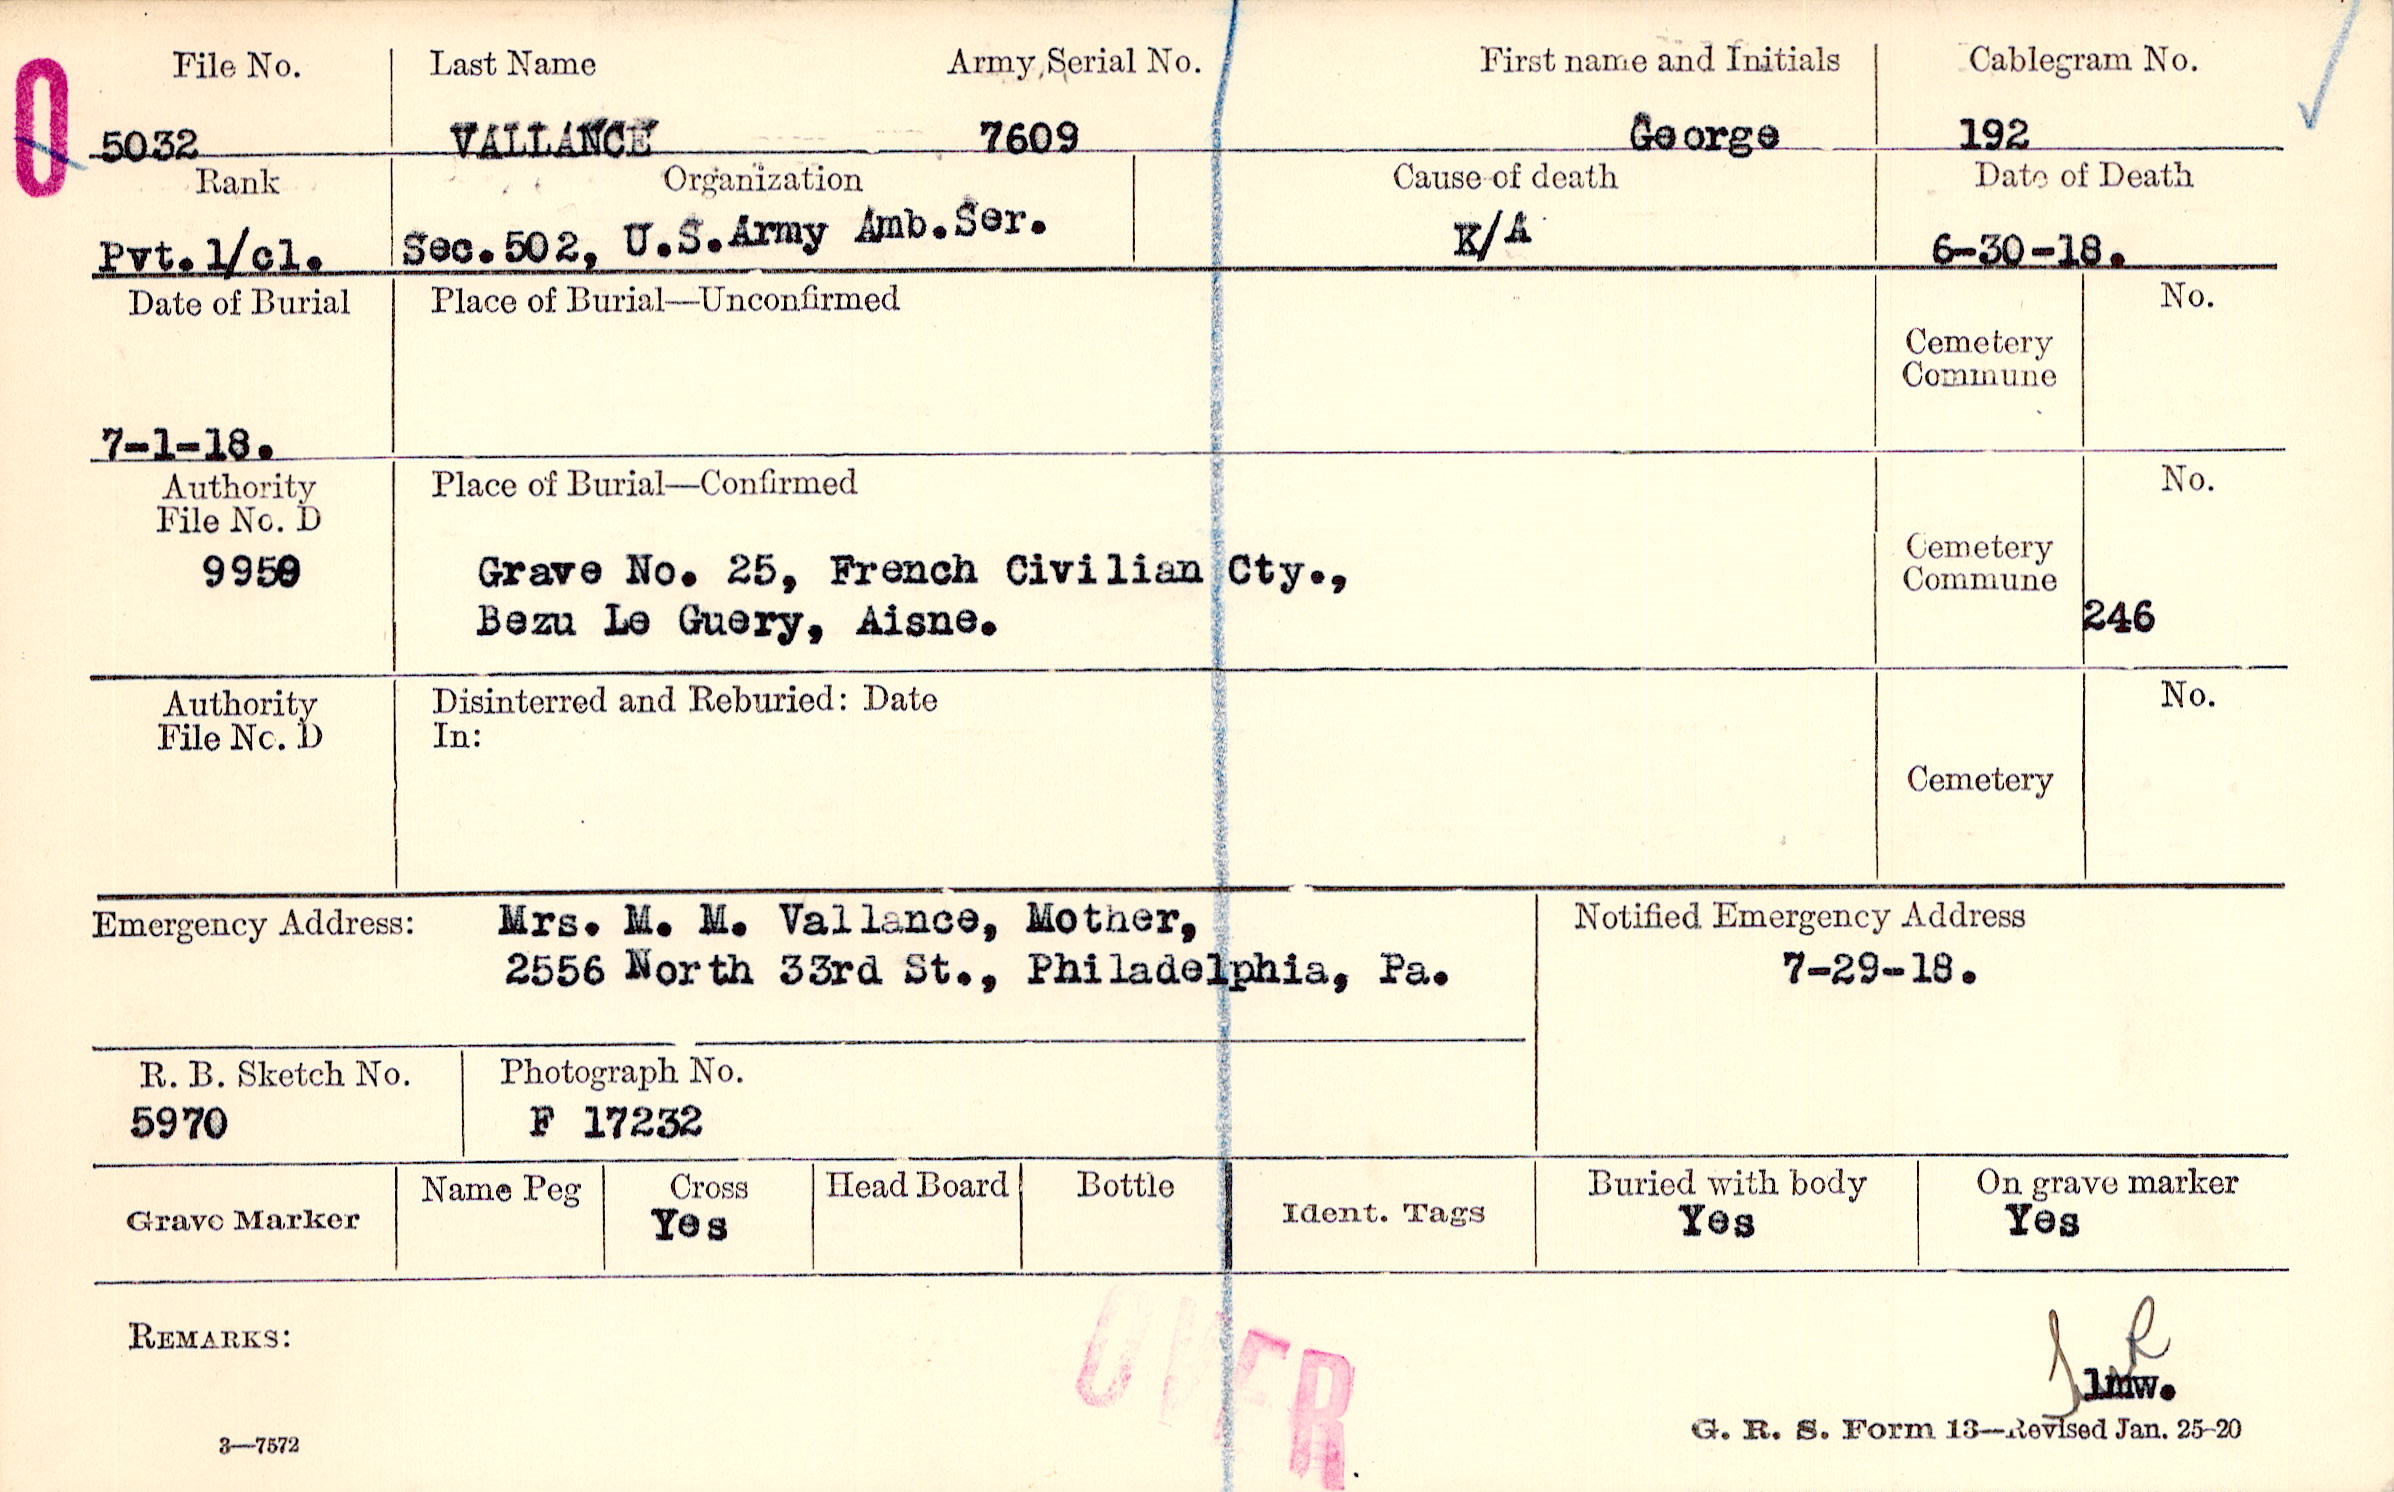 O
File No. Last Name Army Serial No. First name and Initials Cablegram No.
5032 VALLANCE 7609 George 192
Rank Organization Cause of death Date of Death
Pvt. 1/cl. Sec. 502, U.S. Army Amb. Ser. K/A 6-30-18.
Date of Burial Place of Burial—Unconfirmed No.
Cemetery
Commune
7-1-18.
Authority Place of Burial—Confirmed No.
File No. D
Cemetery
9959 Grave No. 25, French Civilian Cty., Commune
Bezu Le Guery, Aisne. 246
Authority Disinterred and Reburied: Date No.
File No. D In:
Cemetery
Emergency Address: Mrs. M. M. Vallance, Mother, Notified Emergency Address
2556 North 33rd St., Philadelphia, Pa. 7-29-18.
R. B. Sketch No. Photograph No.
5970 F 17232
Grave Marker Name Peg Cross Head Board Bottle Ident. Tags Buried with body On grave marker
Yes Yes Yes
REMARKS:
OVER
lmw.
3—7572 G. R. S. Form 13—Revised Jan. 25-20